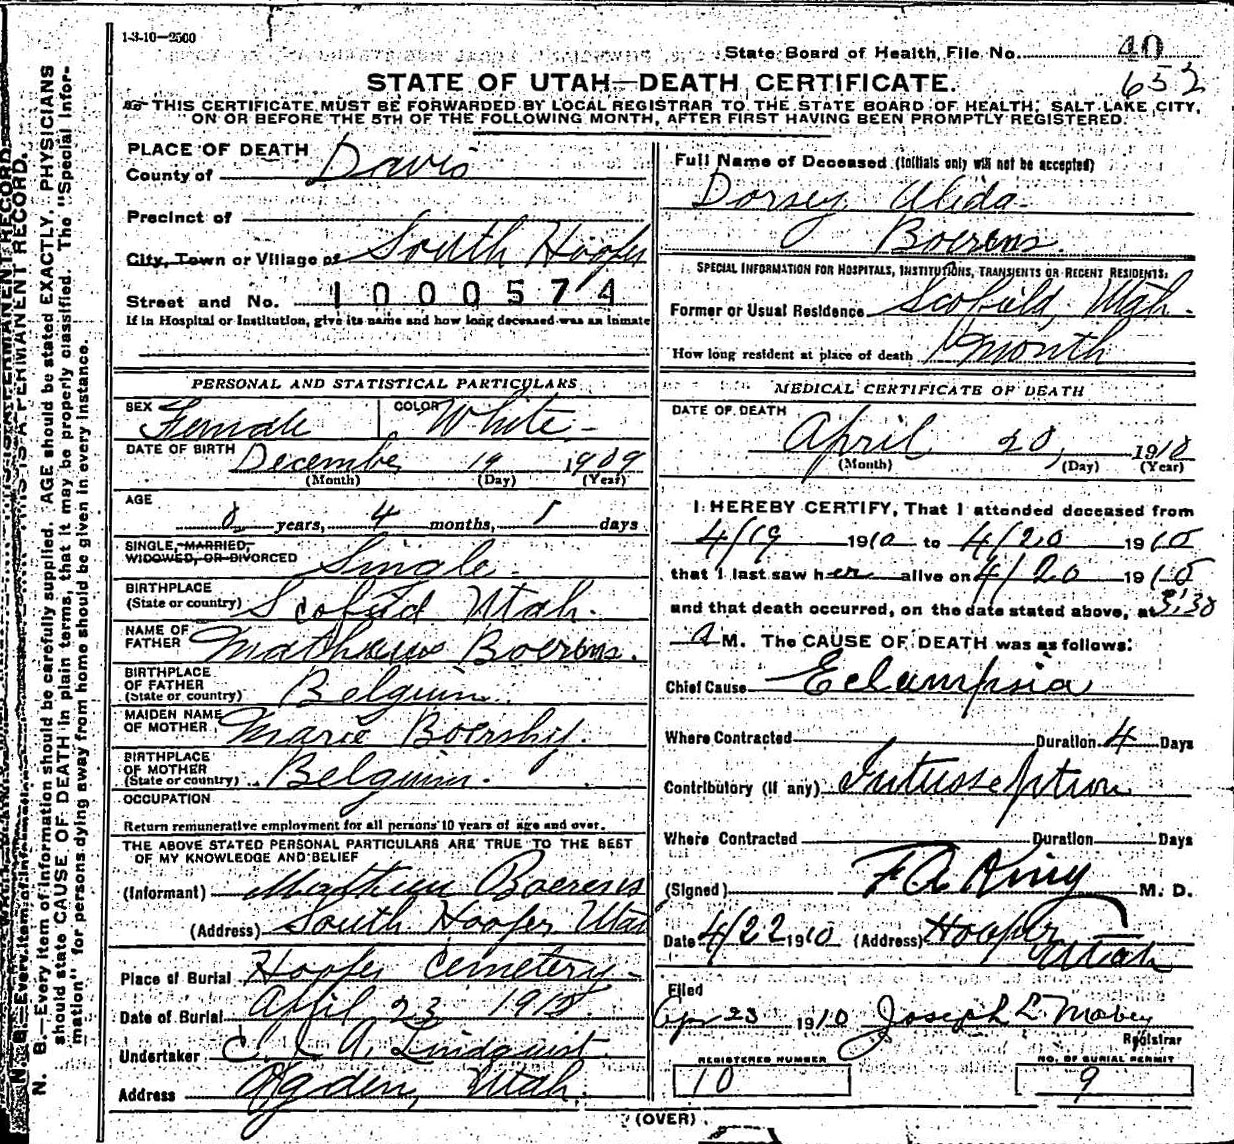 1-3-10—2500
State Board of Health, File No. 40
652
STATE OF UTAH—DEATH CERTIFICATE.
THIS CERTIFICATE MUST BE FORWARDED BY LOCAL REGISTRAR TO THE STATE BOARD OF HEALTH, SALT LAKE CITY,
ON OR BEFORE THE 5TH OF THE FOLLOWING MONTH, AFTER FIRST HAVING BEEN PROMPTLY REGISTERED.
PLACE OF DEATH
County of Davis
Precinct of
City, Town or Village of South Hooper
Street and No. 1000574
If in Hospital or Institution, give its name and how long deceased was an inmate
PERSONAL AND STATISTICAL PARTICULARS
SEX Female COLOR White
DATE OF BIRTH December 19 1909
(Month) (Day) (Year)
AGE
0 years, 4 months, 1 days
SINGLE, MARRIED,
WIDOWED, OR DIVORCED Single
BIRTHPLACE
(State or country) Scofield Utah.
NAME OF
FATHER Mathews Boerens.
BIRTHPLACE
OF FATHER
(State or country) Belguim.
MAIDEN NAME
OF MOTHER Marie
BIRTHPLACE
OF MOTHER
(State or country) Belguim.
OCCUPATION
Return remunerative employment for all persons 10 years of age and over.
THE ABOVE STATED PERSONAL PARTICULARS ARE TRUE TO THE BEST
OF MY KNOWLEDGE AND BELIEF
(Informant) Boerens
(Address) South Hooper Utah
Place of Burial Hooper Cemetery
Date of Burial April 23 1910
Undertaker C. J. A. Lindquist.
Address Ogden, Utah,
Full Name of Deceased (Initials only will not be accepted)
Dorsey Alida
Boerens
SPECIAL INFORMATION FOR HOSPITALS, INSTITUTIONS, TRANSIENTS OR RECENT RESIDENTS:
Former or Usual Residence Scofield, Utah.
How long resident at place of death month
MEDICAL CERTIFICATE OF DEATH
DATE OF DEATH
April 20, 1910
(Month) (Day) (Year)
I HEREBY CERTIFY, That I attended deceased from
4/19 1910 to 4/20 1910
that I last saw her alive on 4/20 1910
and that death occurred, on the date stated above, at 5:30
A M. The CAUSE OF DEATH was as follows:
Chief Cause Eclampsia
Where Contracted Duration 4 Days
Contributory (if any) Intusseption
Where Contracted Duration Days
(Signed) F A King M. D.
Date 4/22 1910 (Address) Hooper
Utah
Filed
Apr 23 1910 Joseph L. Mabey
Registrar
REGISTERED NUMBER
10
NO. OF BURIAL PERMIT
9
(OVER)
N. B.—Every item of information should be carefully supplied. AGE should be stated EXACTLY. PHYSICIANS
should state CAUSE OF DEATH in plain terms, that it may be properly classified. The "Special Infor-
mation" for persons dying away from home should be given in every instance.
THIS IS A PERMANENT RECORD.